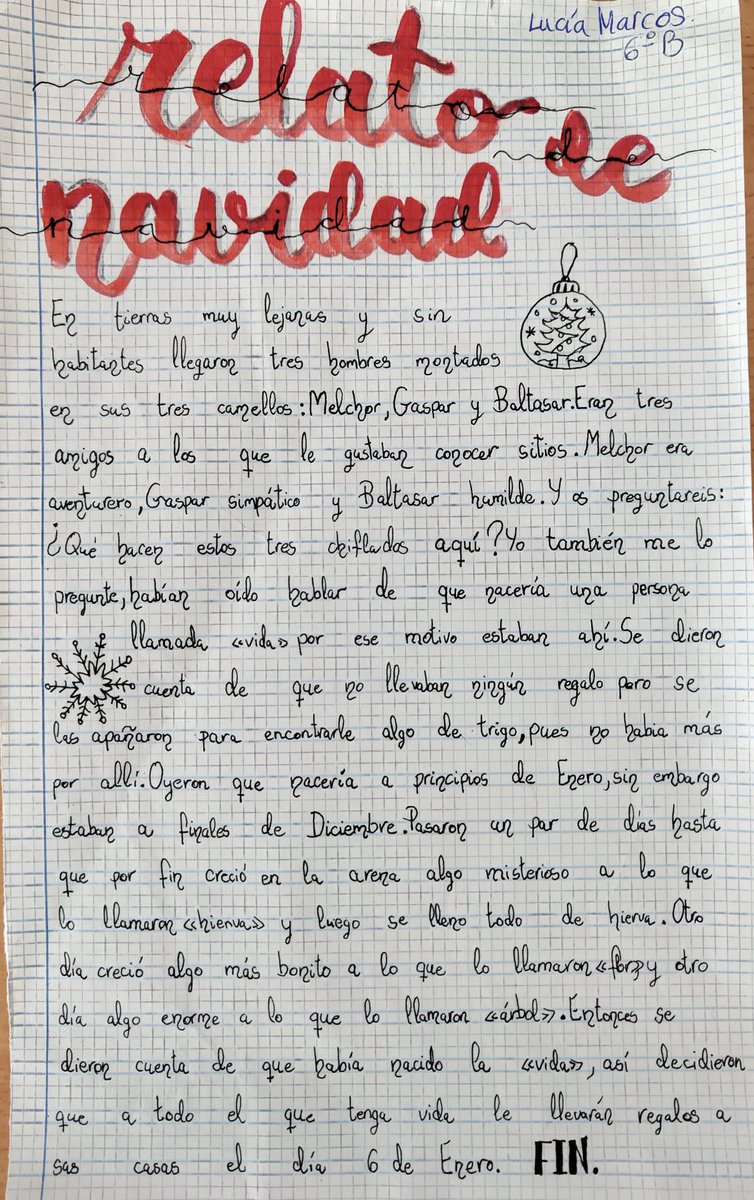 Lucía Marcos.
6ºB
relato de
navidad
En tierras muy lejanas y sin
habitantes llegaron tres hombres montados
en sus tres camellos: Melchor, Gaspar y Baltasar. Eran tres
amigos a los que le gustaban conocer sitios. Melchor era
aventurero, Gaspar simpático y Baltasar humilde. Y os preguntareis:
¿Qué hacen estos tres chiflados aquí? Yo también me lo
pregunte, habían oído hablar de que nacería una persona
llamada «vida» por ese motivo estaban ahí. Se dieron
cuenta de que no llevaban ningún regalo pero se
las apañaron para encontrarle algo de trigo, pues no habia más
por allí. Oyeron que nacería a principios de Enero, sin embargo
estaban a finales de Diciembre. Pasaron un par de días hasta
que por fin creció en la arena algo misterioso a lo que
lo llamaron «hierva» y luego se lleno todo de hierva. Otro
día creció algo más bonito a lo que lo llamaron «flor» y otro
día algo enorme a lo que lo llamaron «árbol». Entonces se
dieron cuenta de que había nacido la «vida», así decidieron
que a todo el que tenga vida le llevarán regalos a
sus casas el día 6 de Enero. FIN.